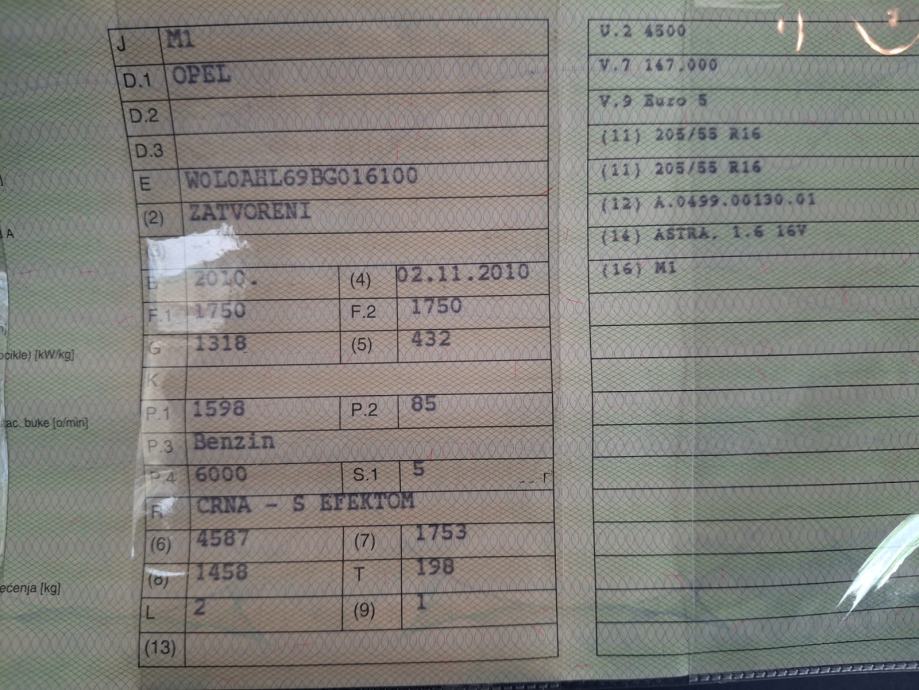 J M1
D.1 OPEL
D.2
D.3
E W0L0AHL69BG016100
(2) ZATVORENI
(3)
B 2010. (4) 02.11.2010
F.1 1750 F.2 1750
G 1318 (5) 432
K
P.1 1598 P.2 85
P.3 Benzin
P.4 6000 S.1 5
R CRNA - S EFEKTOM
(6) 4587 (7) 1753
(8) 1458 T 198
L 2 (9) 1
(13)
U.2 4500
V.7 147,000
V.9 Euro 5
(11) 205/55 R16
(11) 205/55 R16
(12) A.0499.00130.01
(14) ASTRA, 1.6 16V
(16) M1
A
[kW/kg]
buke [o/min]
[kg]